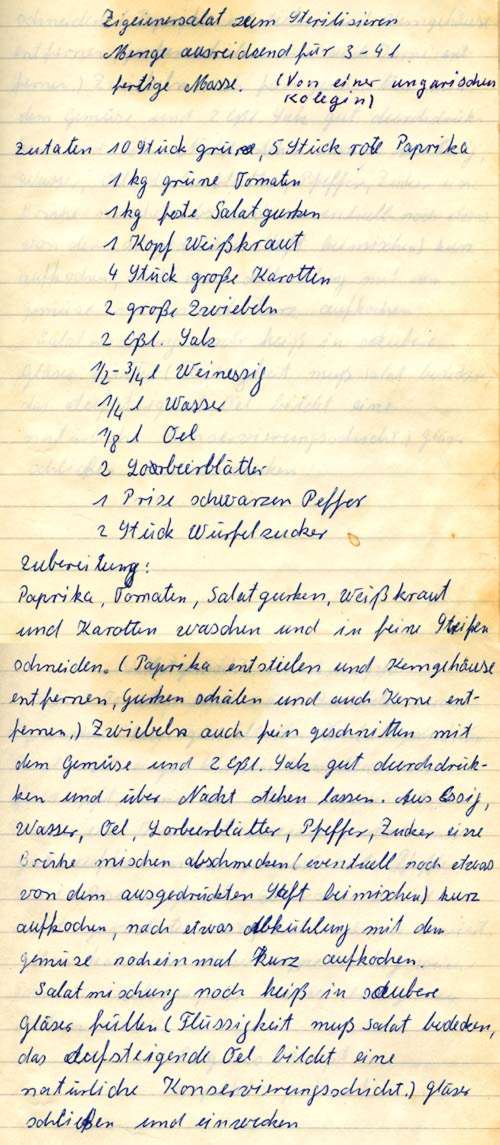 Zigeinersalat zum Sterilisieren
Menge ausreidsend für 3-4 l
fertige Masse. (Von einer ungarischen
Kolegin)
Zutaten 10 Stück grüne, 5 Stück rote Paprika
1 kg grüne Tomaten
1 kg feste Salatgurken
1 Kopf Weißkraut
4 Stück große Karotten
2 große Zwiebeln
2 Eßl. Salz
1/2-3/4 l Weinessig
1/4 l Wasser
1/8 l Oel
2 Loorbeerblätter
1 Prise schwarzen Peffer
2 Stück Würfelzucker
Zubereitung:
Paprika, Tomaten, Salatgurken, Weißkraut
und Karotten waschen und in feine Streifen
schneiden. (Paprika entstielen und Kerngehäuse
entfernen, Gurken schälen und auch Kerne ent-
fernen.) Zwiebeln auch fein geschnitten mit
dem Gemüse und 2 Eßl. Salz gut durchdrük-
ken und über Nacht stehen lassen. Aus Essig,
Wasser, Oel, Lorbeerblätter, Pfeffer, Zucker eine
Brühe mischen abschmecken (eventuell noch etwas
von dem ausgedrückten Saft beimischen) kurz
aufkochen, nach etwas Abkühlung mit dem
gemüse nocheinmal kurz aufkochen.
Salatmischung noch heiß in saubere
Gläser füllen (Flüssigkeit muß Salat bedecken,
das aufsteigende Oel bildet eine
natürliche Konservierungsschicht.) Gläser
schließen und einwecken